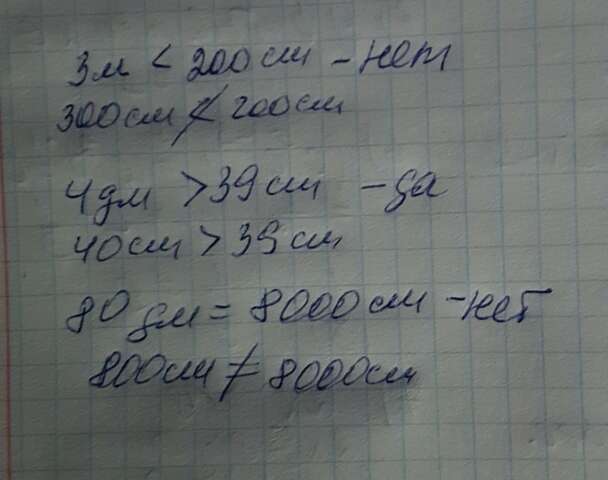 3м < 200см - нет
300см ≮ 200см
4дм > 39см - да
40см > 39см
80дм = 8000см - нет
800см ≠ 8000см